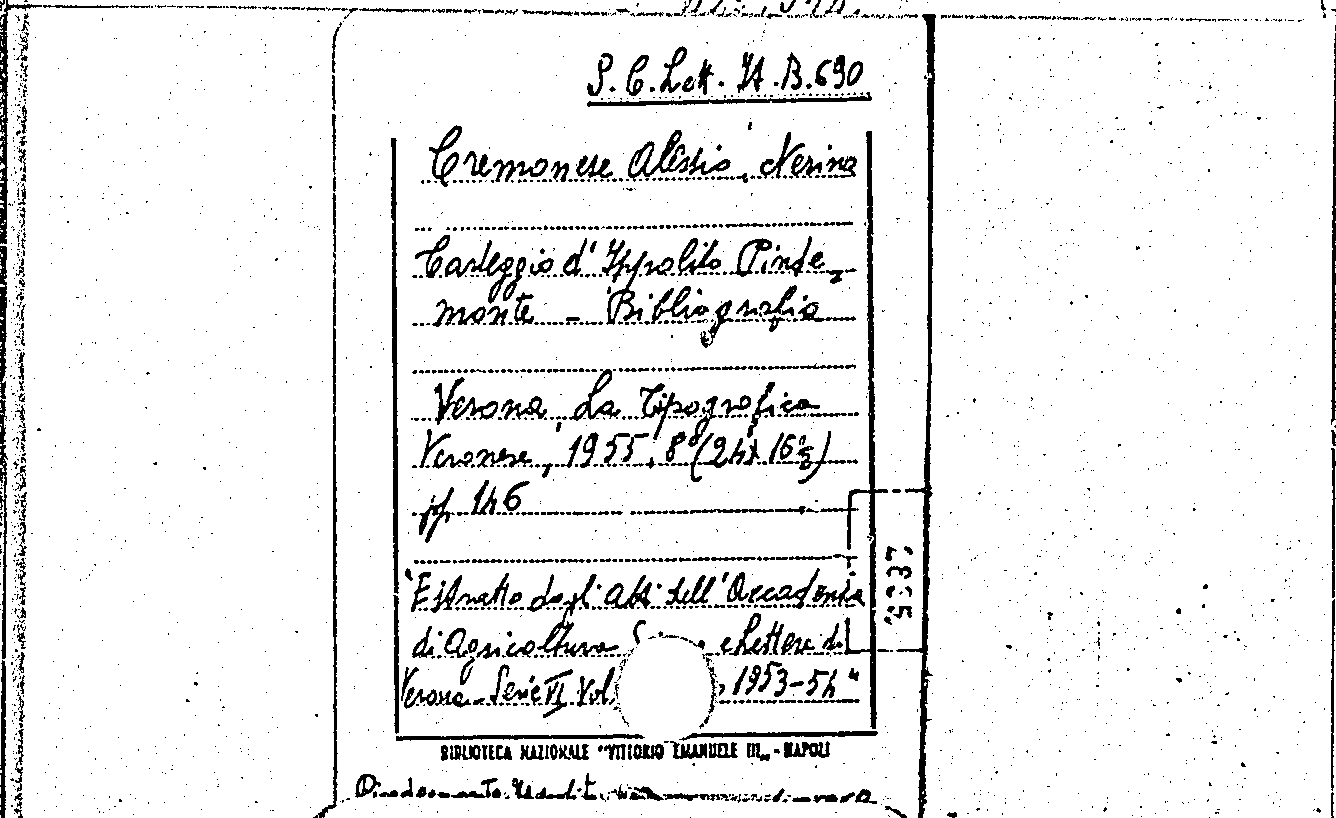 S. C. Lett. It. B. 690
Cremonese Alessio, Nerina
Carteggio d'Ippolito Pinde-
monte - Bibliografia
Verona, La Tipografica
Veronese, 1955, 8° (24 x 16½)
pp. 146
"Estratto dagli Atti dell'Accademia
di Agricoltura e Lettere di
Verona - Serie VI Vol. , 1953-54"
BIBLIOTECA NAZIONALE "VITTORIO EMANUELE III„ - NAPOLI